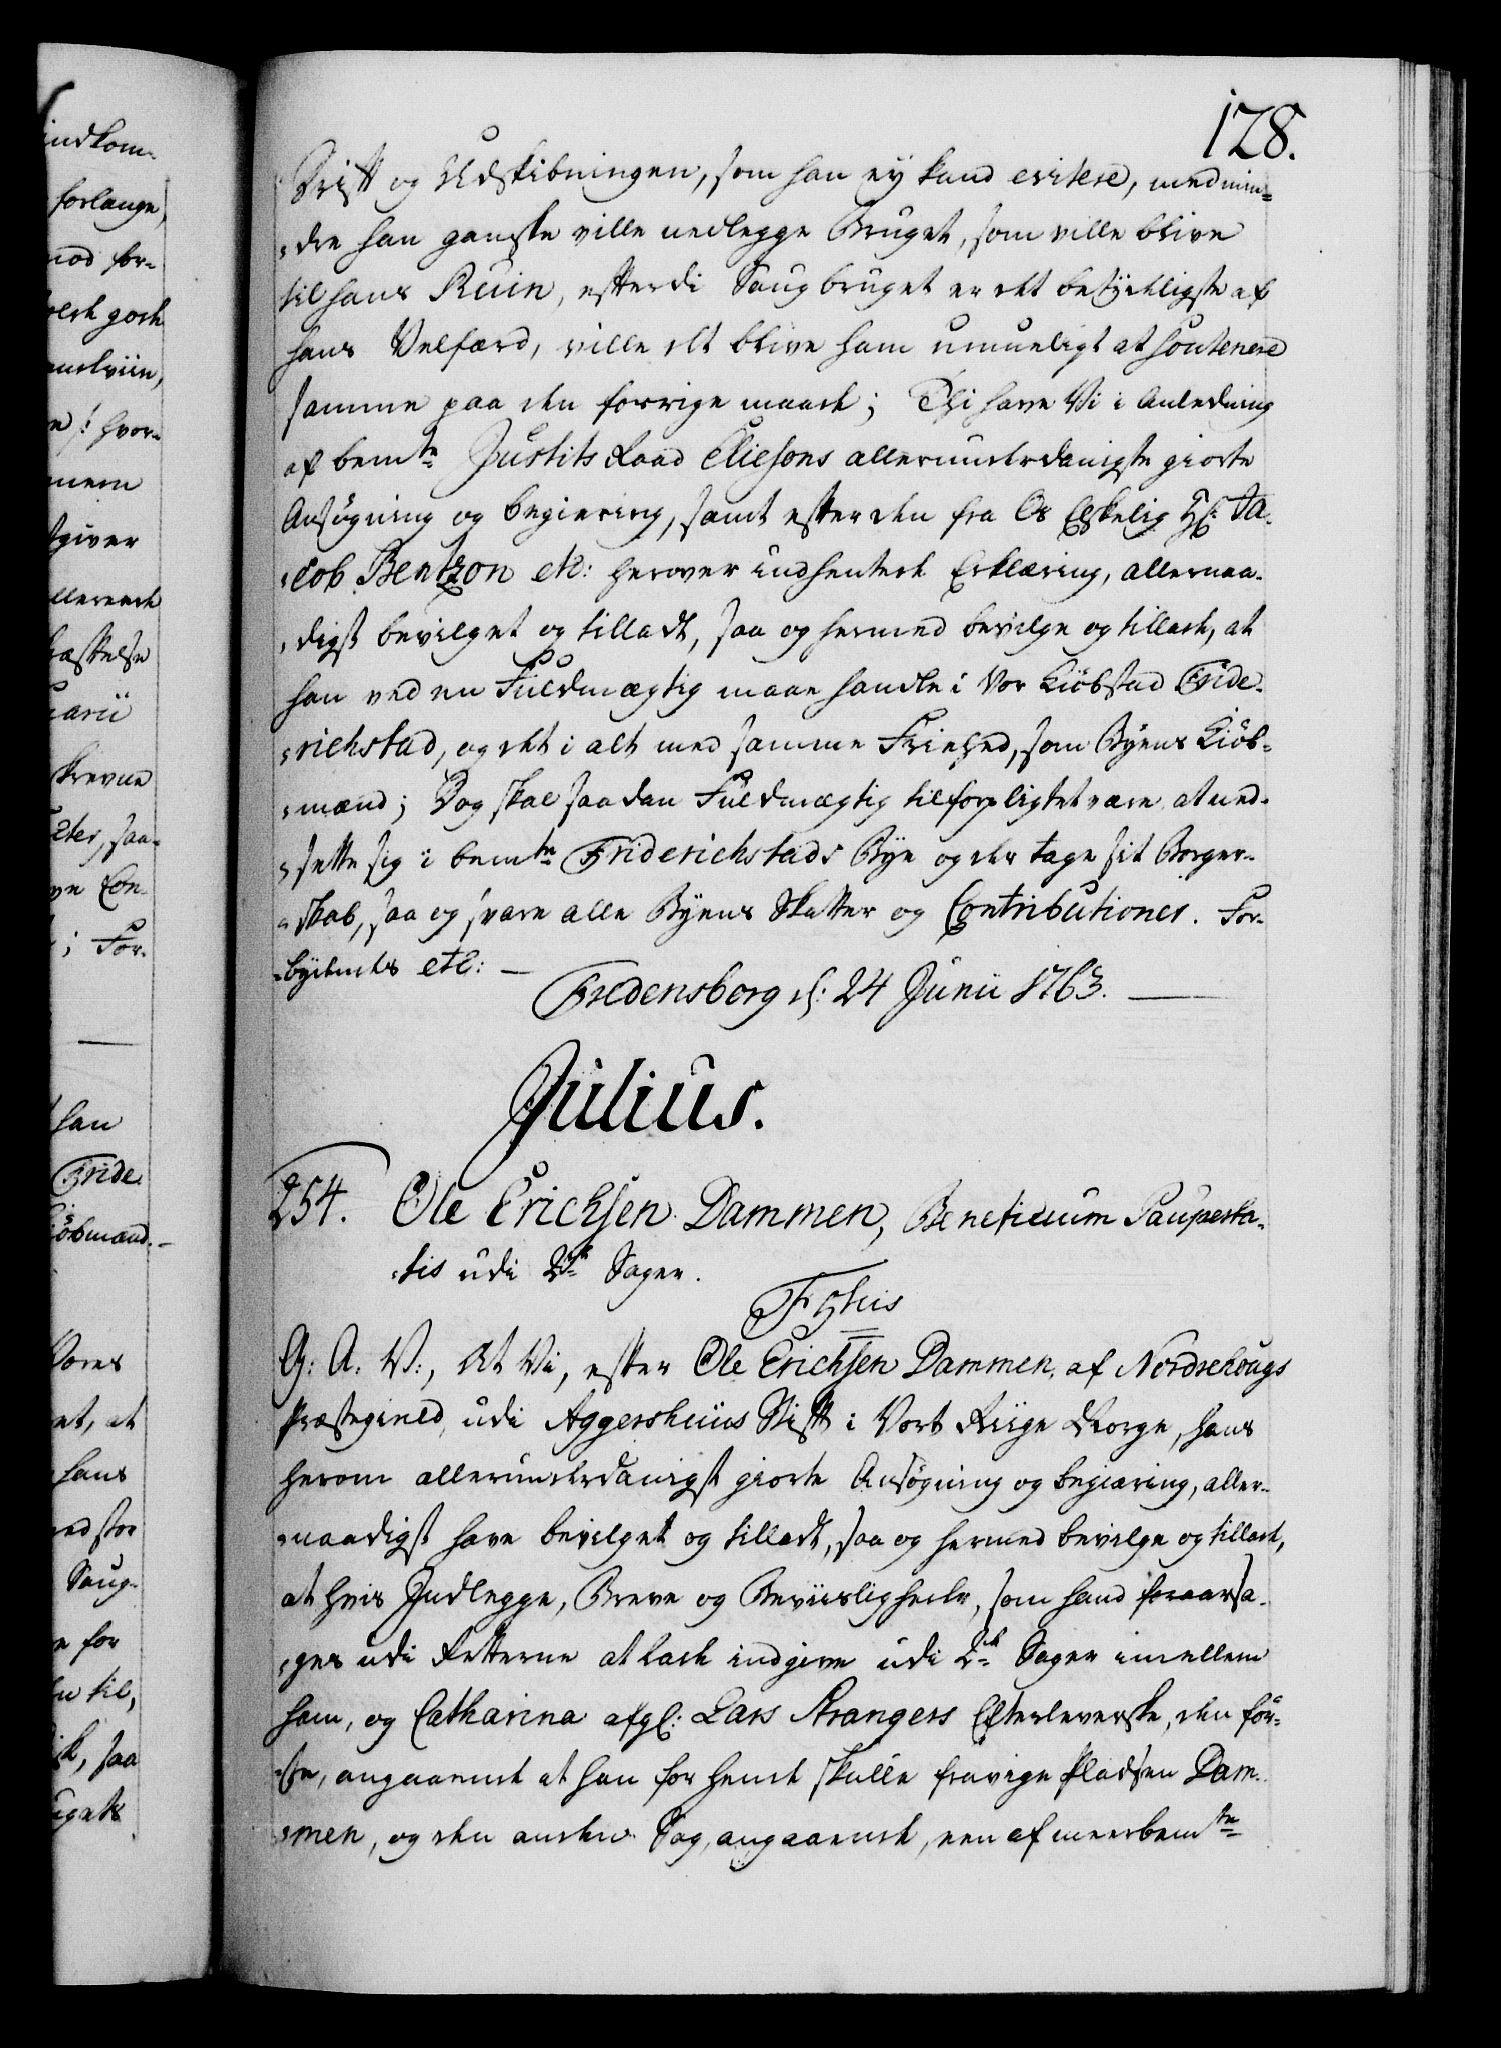 128.
Drift og Udskibningen, som han ey kand evitere, med min-
-dre han ganske ville nedlegge Bruget, som ville blive
til hans Ruin, efterdi Saugbruget er det betydeligste af
hans Velfærd, ville det blive ham umueligt at soutenere
samme paa den forrige maade; Thi have Vi i Anledning
af bemte Justits Raad Eliesons allerunderdanigste giorte
Ansøgning og begiering, samt efter den fra Os Elskelig Hr: Ja-
-cob Bentzon etc: herover indhentede Erklæring, allernaa-
-digst bevilget og tilladt, saa og hermed bevilge og tillade, at
han ved en Fuldmægtig maae handle i Vor Kiöbstad Fride-
-richstad, og det i alt med samme Friehed, som Byens Kiöb-
-mænd; Dog skal saadan Fuldmægtig tilforpligtet være at ned-
-sette sig i bemte Friderichstads Bye og der tage sit Borger-
-skab, saa og svare alle Byens Skatter og Contributioner. For-
-bydendes etc: —
Fredensborg d: 24 Junii 1763. —
Julius.
254. Ole Erichsen Dammen, Beneficium Pauperta-
-tis udi 2de Sager.
F 5tus
G: A: V:, At Vi, efter Ole Erichsen Dammen, af Nordrehougs
Præstegield, udi Aggershuus Stift i Vort Riige Norge, hans
herom allerunderdanigst giorte Ansøgning og begiæring, aller-
-naadigst have bevilget og tilladt, saa og hermed bevilge og tillade,
at hvis Indlegge, Breve og Beviisligheder, som hand foraarsa-
-ges udi Retterne at lade indgive udi 2de Sager imellem
ham, og Catharina afgl: Lars Strangers Efterleverske, denför-
-ste, angaaende at han for hende skulle fravige Pladsen Dam-
-men, og den anden Sag, angaaende, een af meerbemte